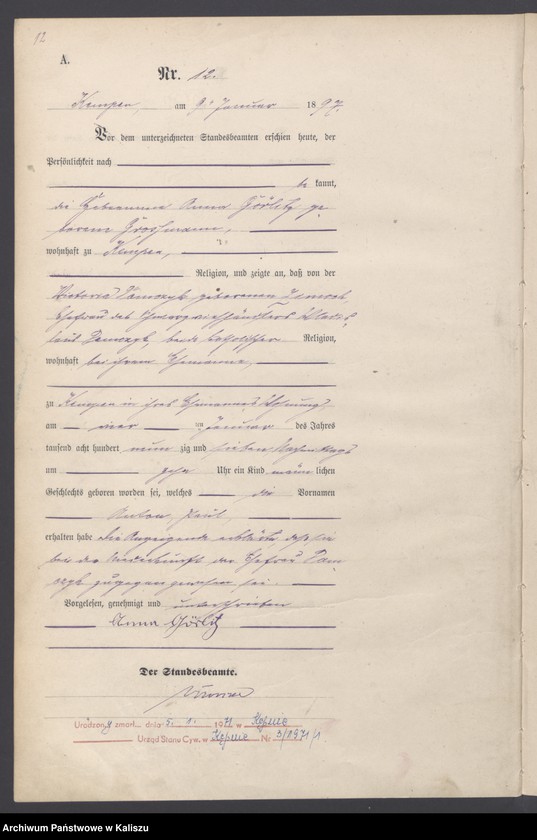 12
A.
Nr. 12.
Kempen, am 9. Januar 1897.
Vor dem unterzeichneten Standesbeamten erschien heute, der
Persönlichkeit nach
be kannt,
die Hebamme Anna Görlitz ge-
borene Grossmann,
wohnhaft zu Kempen,
Religion, und zeigte an, daß von der
geborenen
Ehefrau des
beide katholischer Religion,
wohnhaft bei ihrem Ehemanne,
zu Kempen in ihres Ehemannes Wohnung,
am Januar des Jahres
tausend acht hundert neun zig und sieben Nachmittags
um zehn Uhr ein Kind männ lichen
Geschlechts geboren worden sei, welches die Vornamen
Anton, Paul,
erhalten habe. Die Anzeigende erklärte, daß sie
bei der Niederkunft der Ehefrau
zugegen gewesen sei.
Vorgelesen, genehmigt und unterschrieben
Anna Görlitz
Der Standesbeamte.
Urodzony zmarł... dnia 5. 1. 1971 w Kępnie
Urząd Stanu Cyw. w Kępnie Nr 3/1971/1
Archiwum Państwowe w Kaliszu